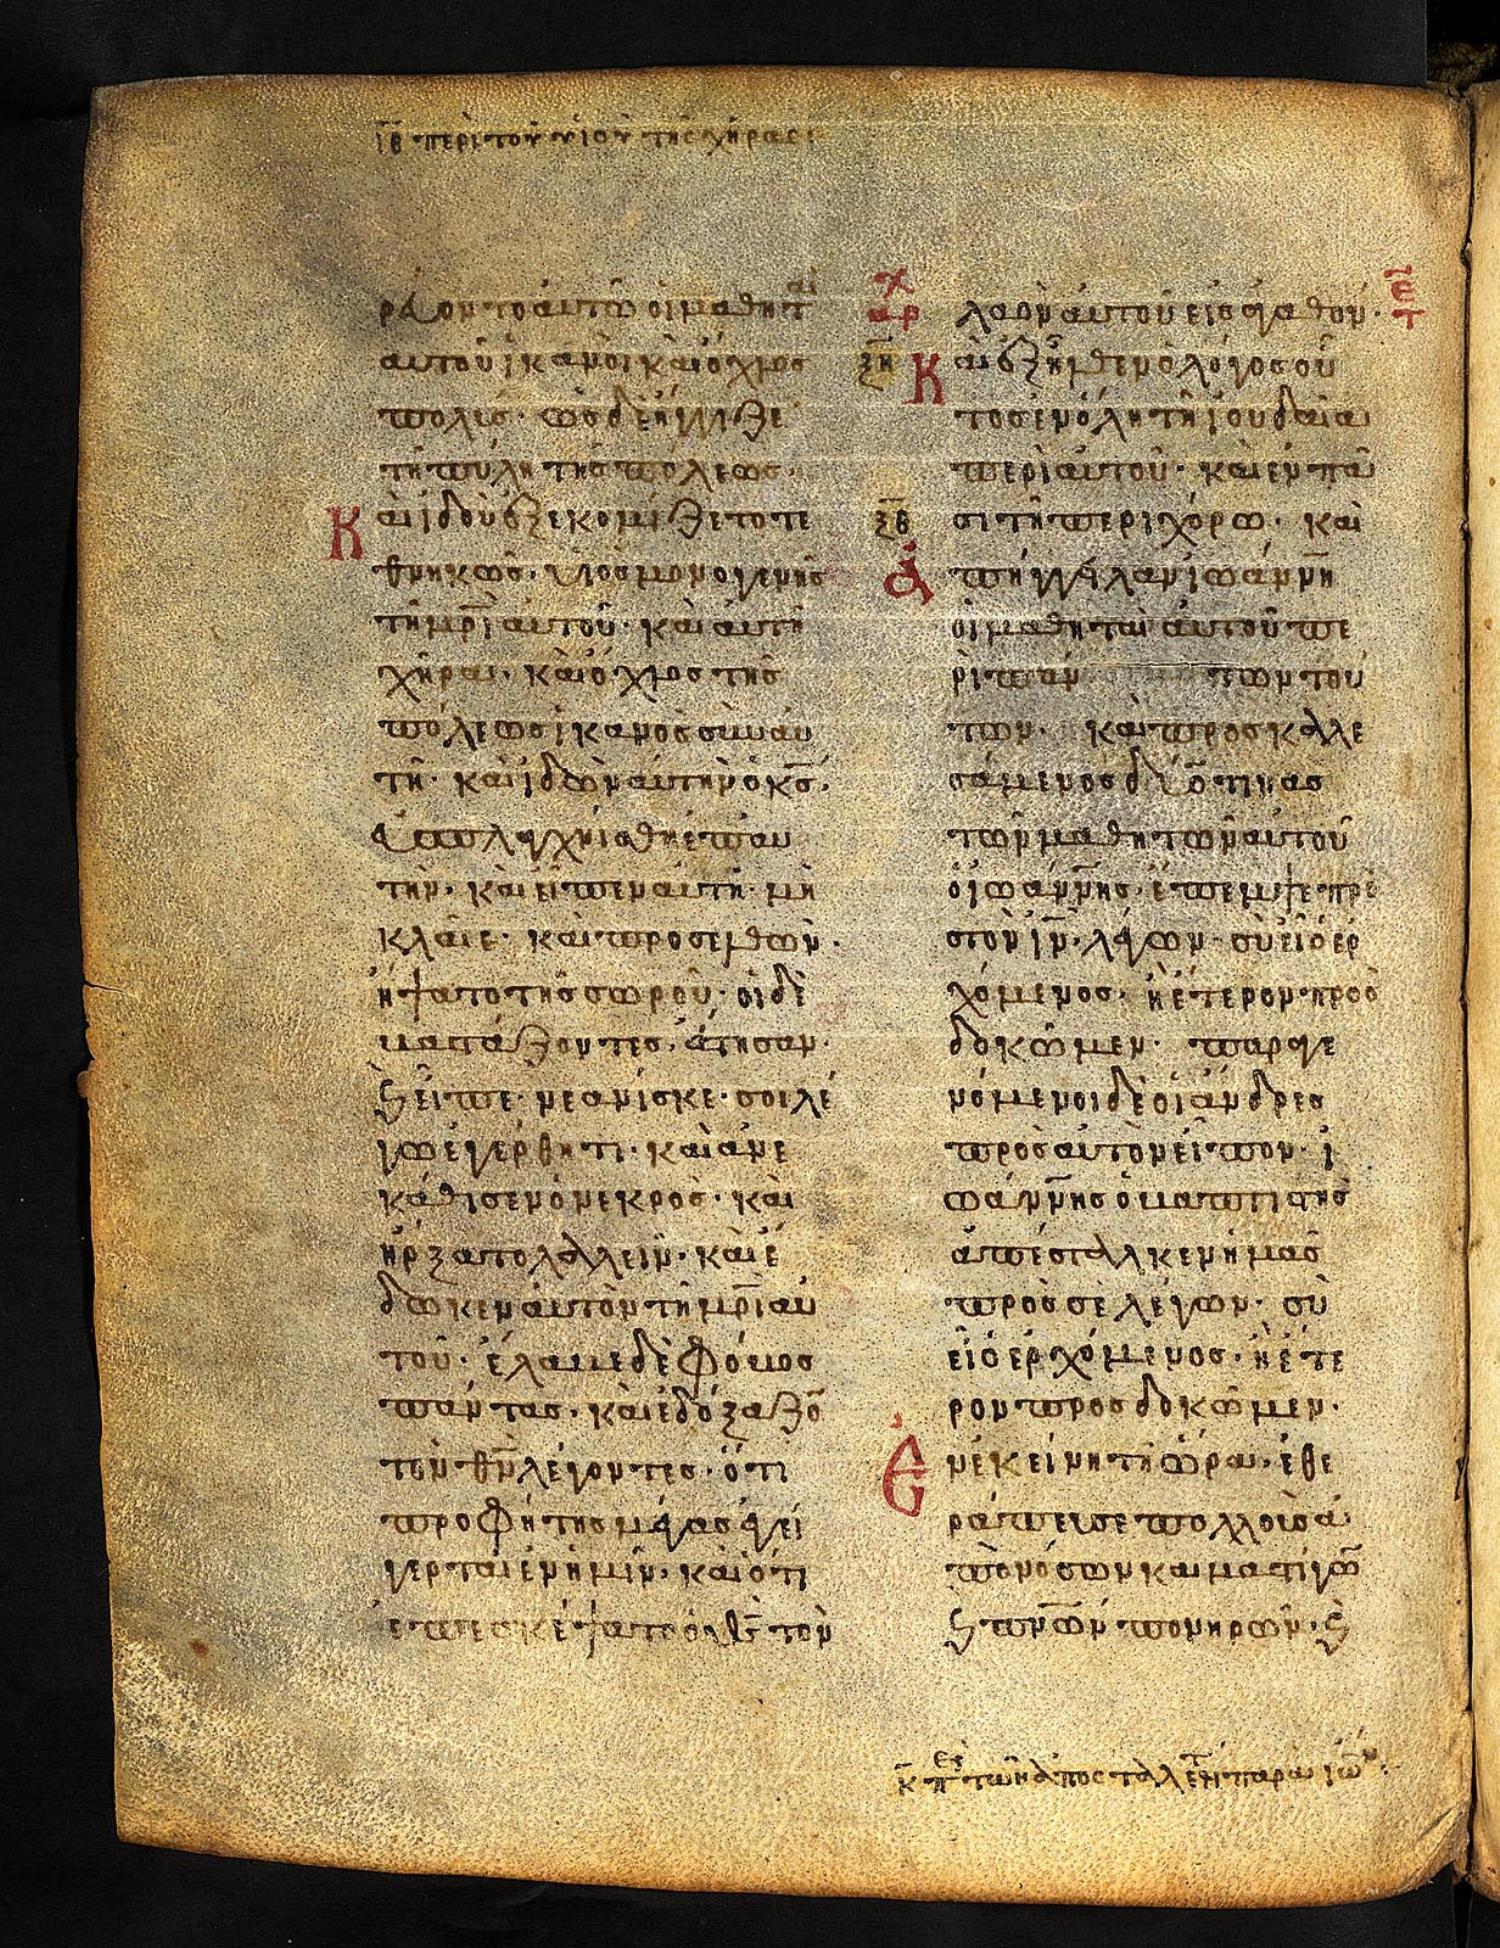 ιβ περὶ τοῦ υἱοῦ τῆς χήρας
ρεύοντο αὐτῶ οἱ μαθητ αὶ
αὐτοῦ ἱκανοὶ καὶ ὄχλος
πολύς· ὡς δὲ ἤγγιζε
τῆ πύλη τῆς πόλεως·
Καὶ ἰδοὺ ἐξεκομίζετο τε
θνηκὼς· υἱὸς μονογενὴς
τῆ μρ̅ὶ αὐτοῦ· καὶ αὐτὴ
χῆρα· καὶ ὄχλος τῆς
πόλεως ἱκανὸς σὺν αὐ
τῆ· καὶ ἰδὼν αὐτὴν ὁ κ̅ς·
ἐσπλαγχνίσθη ἐπ' αὐ
τὴν· καὶ εἶπεν αὐτῆ· μὴ
κλαῖε· καὶ προσελθὼν·
ἥψατο τῆς σωροῦ· οἱ δὲ
βαστάζοντες, ἔστησαν·
ϗ εἶπε· νεανίσκε· σοὶ λέ
γω ἐγέρθητι· καὶ ἀνε
κάθισεν ὁ νεκρὸς· καὶ
ἤρξατο λαλλεῖν· καὶ ἔ
δωκεν αὐτὸν τῆ μρ̅ὶ αὐ
τοῦ· ἔλαβε δὲ φόβος
πάντας· καὶ ἐδόξαζο̅
τὸν θ̅ν λέγοντες· ὅτι
προφήτης μέγας ἐγεί
γερται ἐν ἡμῖν· καὶ ὅτι
ἐπεσκέψατο ὁ θ̅ς τὸν
χ
αρ
λαὸν αὐτοῦ εἰς ἀγαθόν·
ε̅
τ
ξη
Καὶ ἐξῆλθεν ὁ λόγος οὗ
τος ἐν ὅλη τῆ ἰουδαία
περὶ αὐτοῦ· καὶ ἐν πᾶ
ξθ
σι τῆ περιχόρω· καὶ
Ἀπήγγειλαν ἰωάννη
οἱ μαθηταὶ αὐτοῦ πε
ρὶ πάν των τού
των· καὶ προσκαλλε
σάμενος δύο τινὰς
τῶν μαθητῶν αὐτοῦ
ὁ ἰωάννης· ἔπεμψε πρὸ
ς τὸν ι̅ν· λέγων· σὺ εἶ ὁ ἐρ
χόμενος· ἢ ἕτερον προσ
δοκῶμεν· παραγε
νόμενοι δὲ οἱ ἄνδρες
πρὸς αὐτὸν εἶπον· ἰ
ωάννης ὁ βαπτιστὴς
ἀπέσταλκεν ἡμᾶς
πρὸς σὲ λέγων· σὺ
εἶ ὁ ἐρχόμενος· ἢ ἕτε
ρον προσδοκῶμεν·
Ἐν ἐκείνη τῆ ὥρα· ἐθε
ράπευσε πολλοὺς ἀ
πὸ νόσων καὶ μαστίγω̅
ϗ πν̅ων πονηρῶν· ϗ
κ̅ π τῶν ἀποσταλέντ παρὰ ἰω̅